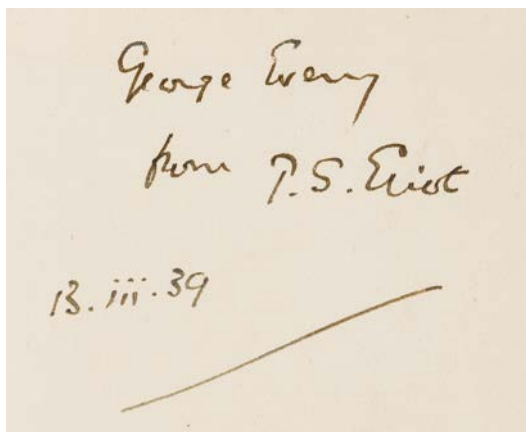 George Every
from T.S. Eliot
13.iii.39